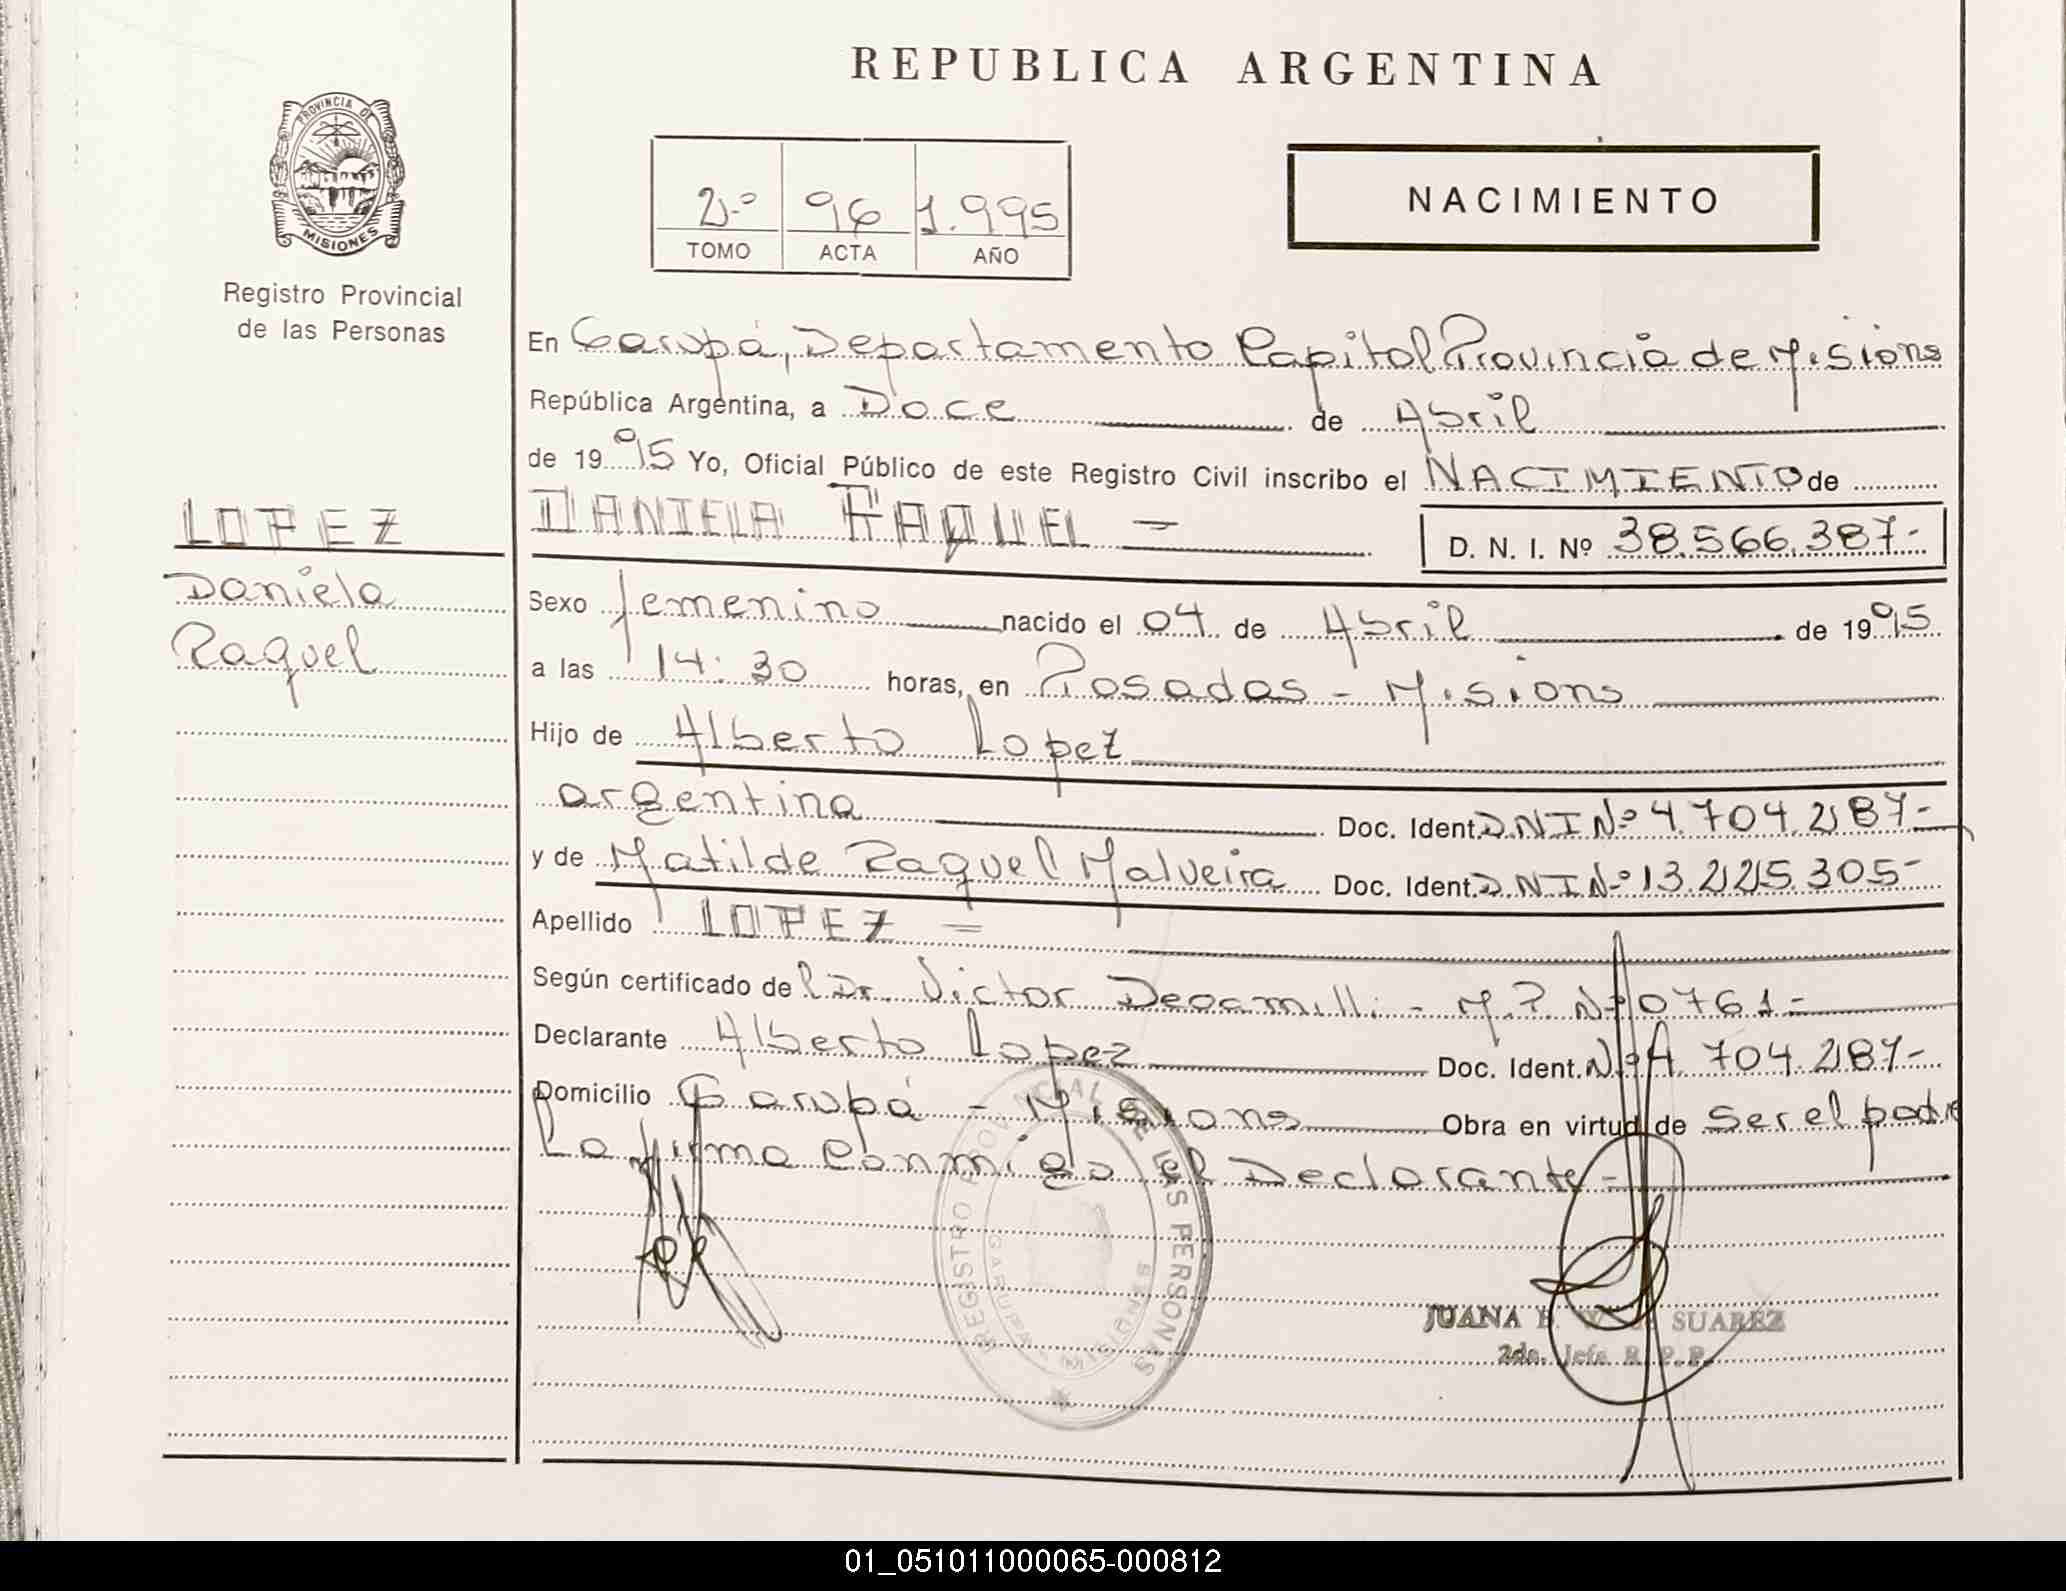 REPUBLICA ARGENTINA
PROVINCIA DE
MISIONES
Registro Provincial
de las Personas
2º
96
1.995
TOMO
ACTA
AÑO
NACIMIENTO
En Garupá, Departamento Capital Provincia de Misions
República Argentina, a Doce de Abril
de 1995 Yo, Oficial Público de este Registro Civil inscribo el NACIMIENTO de
LOPEZ
Daniela
Raquel
DANIELA RAQUEL -
D. N. I. Nº 38.566.387-
Sexo femenino nacido el 04 de Abril de 1995
a las 14:30 horas, en Posadas - Misions
Hijo de Alberto Lopez
argentina Doc. Ident. DNI Nº 4.704.287-
y de Matilde Raquel Malveira Doc. Ident. DNI Nº 13.225.305-
Apellido LOPEZ =
Según certificado del Dr. Victor - M.P. Nº 0761-
Declarante Alberto Lopez Doc. Ident. Nº 4.704.287-
Domicilio Garupá - Misions Obra en virtud de ser el padre
La firma conmigo el Declarante-
REGISTRO PROVINCIAL DE LAS PERSONAS
GARUPA MISIONES
JUANA SUAREZ
2da. Jefa R.P.P.
01_051011000065-000812